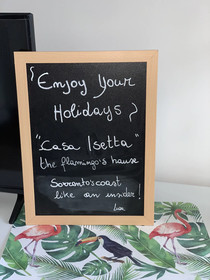 Enjoy Your
Holidays
"Casa Isetta"
the flamingo's hause
Sorrento's coast
like an insider!